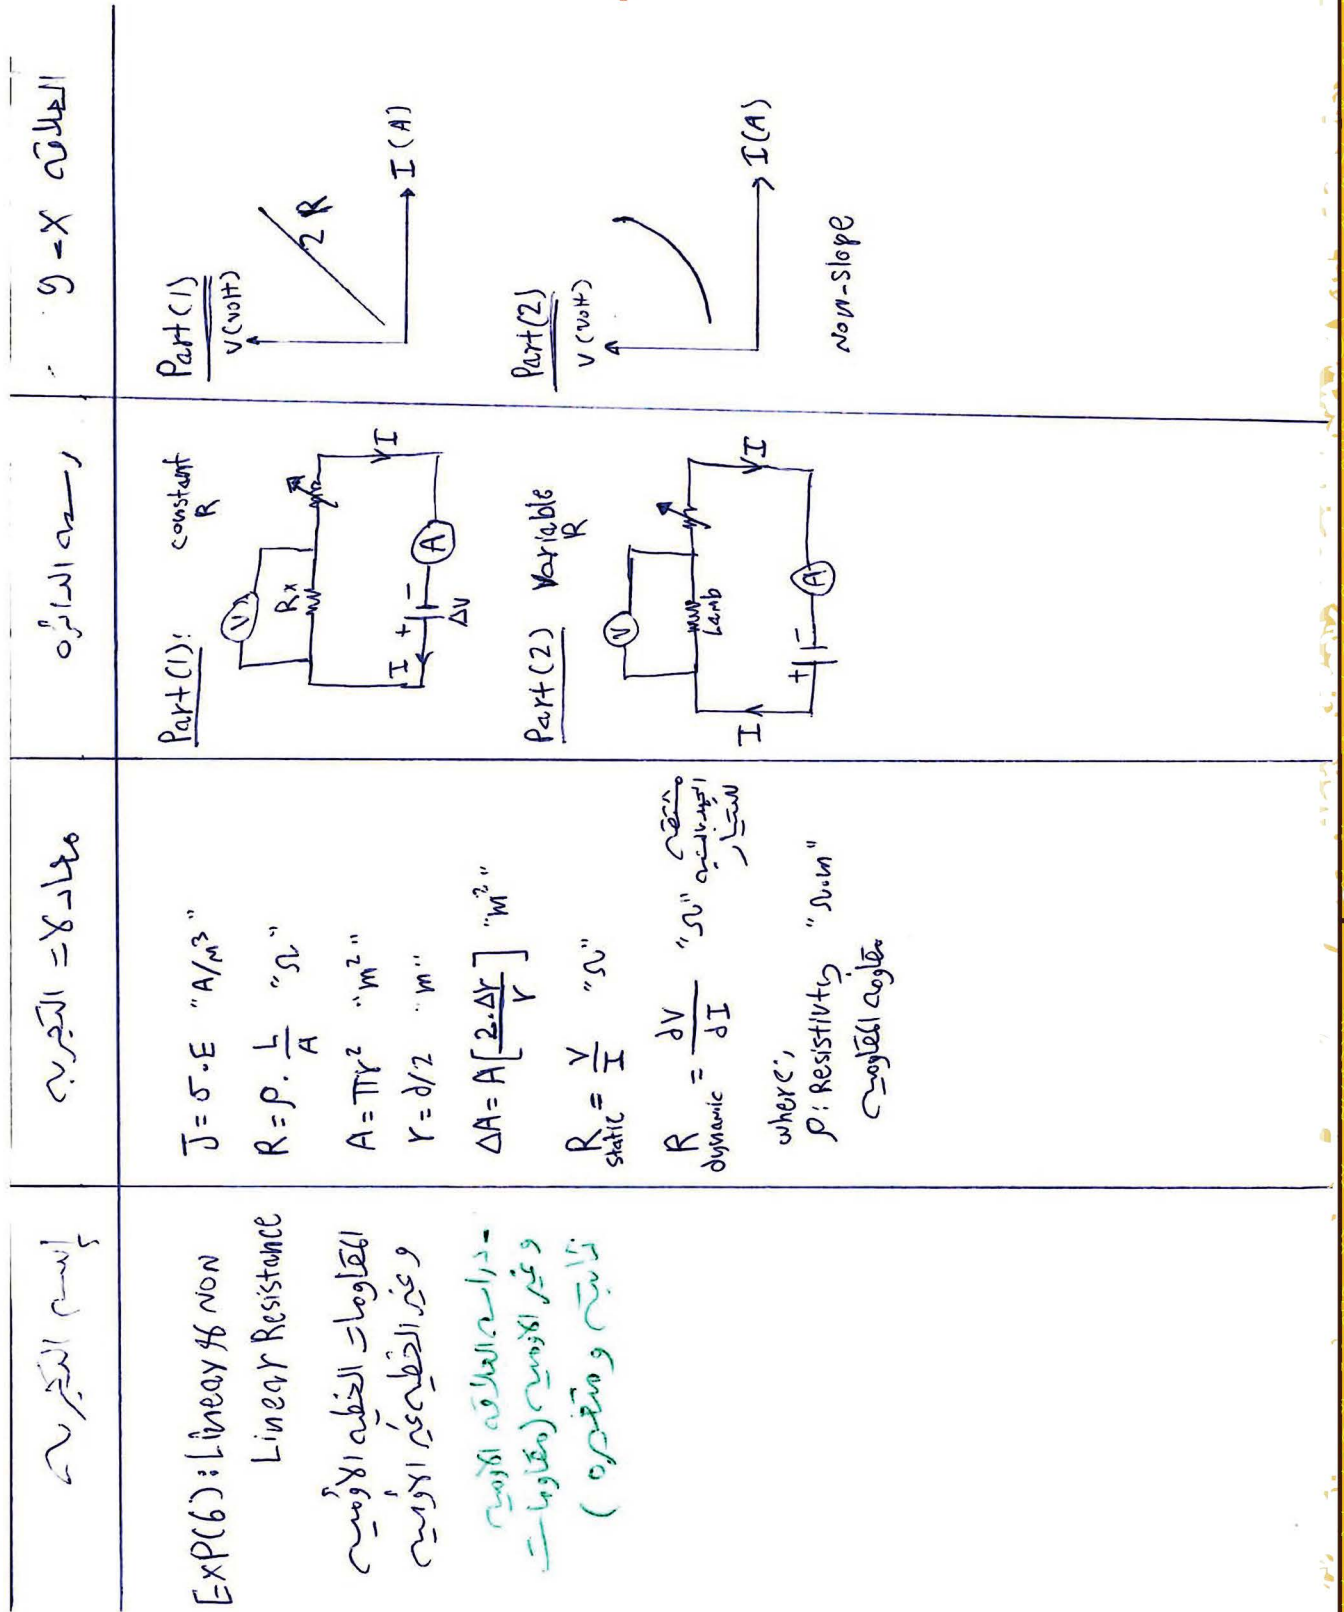 إسم التجربه
معادلات التجربه
رسمه الدائره
العلاقه y-x
EXP(6): Linear & NON
Linear Resistance
المقاومات الخطيه الأوميه
وغير الخطيه غير الأوميه
- دراسه العلاقه الاوميه
وغير الاوميه (مقاومات
ثابته ومتغيره)
J = σ.E "A/m³"
R = ρ. L/A "Ω"
A = πr² "m²"
r = d/2 "m"
ΔA = A[2.Δr/r] "m²"
R static = V/I "Ω"
R dynamic = dV/dI "Ω" مشتقه
الجهد بالنسبه
للتيار
where;
ρ: Resistivty "Ω.m"
مقاومه المقاوميه
Part(1): constant
R
V
Rx
I
A
+ -
ΔV
I
Part(2) Variable
R
V
Lamb
I
A
+ -
I
Part(1)
V(volt)
2 R
I(A)
Part(2)
V(volt)
I(A)
Non-slope